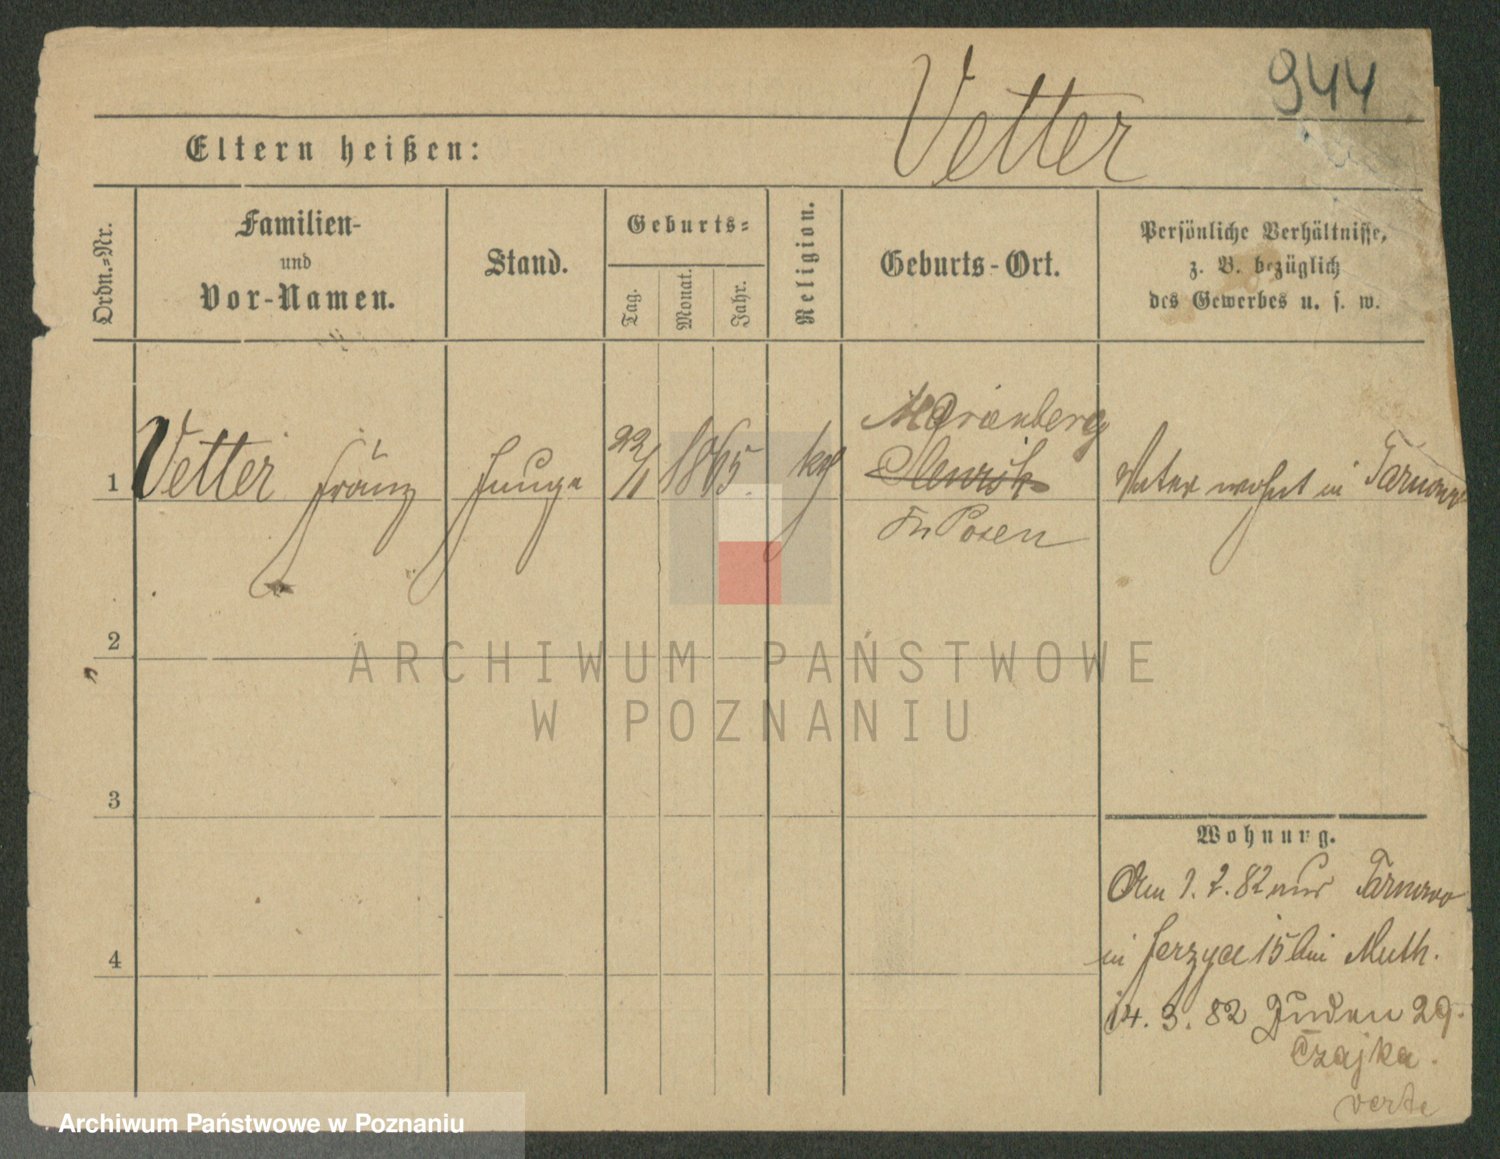 944
Vetter
Eltern heißen:
Ordn.=Nr.
Familien-
und
Vor-Namen.
Stand.
Geburts=
Tag.
Monat.
Jahr.
Religion.
Geburts-Ort.
Persönliche Verhältnisse,
z. B. bezüglich
des Gewerbes u. s. w.
Marienberg
1 Vetter Franz Junge 22/1 1865. kth Vater wohnt in Tarnowo
Kr Posen
2
3
4
Wohnung.
Am 1.2.82 aus Tarnowo
in Jerzyce 15 bei Muth.
14.3.82 Juden 29.
Czajka.
verte
ARCHIWUM PAŃSTWOWE
W POZNANIU
Archiwum Państwowe w Poznaniu